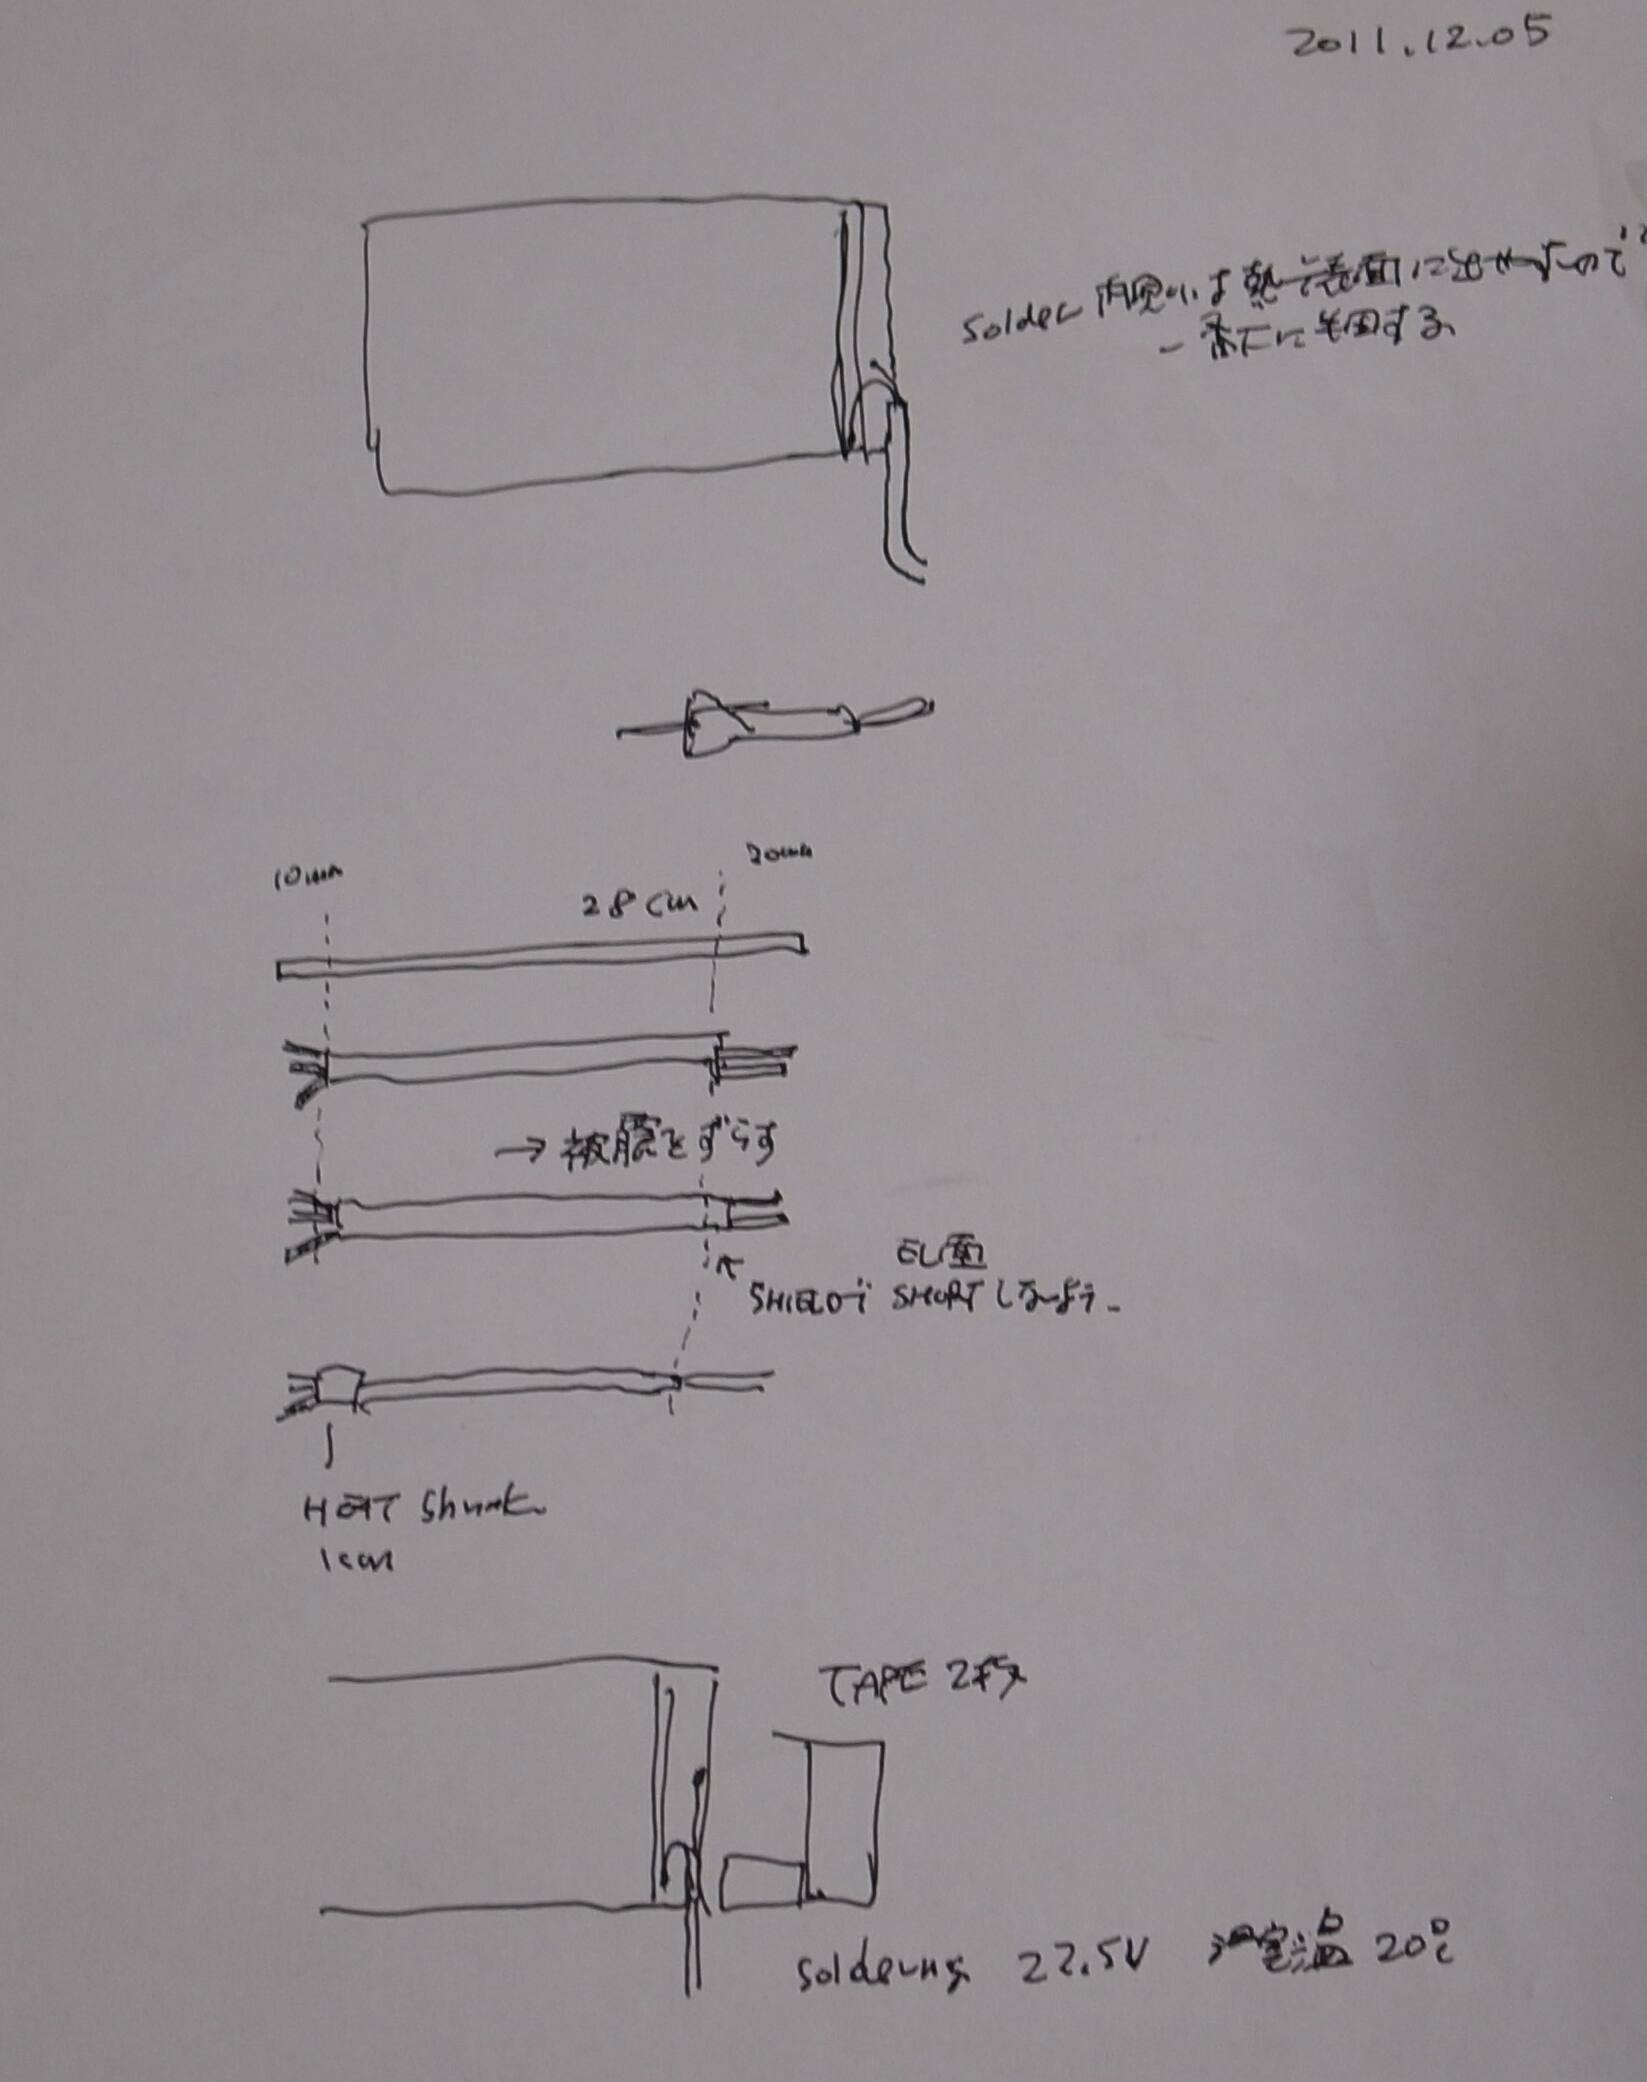 2011.12.05
Solder 内見いは熱で表面に出せたので
一番下に半田する
10mm
20mm
28cm
→ 被膜をずらす
EL面
SHIELDで SHORTしないよう
HEAT Shrink
1cm
TAPE 2枚
Soldering 22.5V 室温 20℃